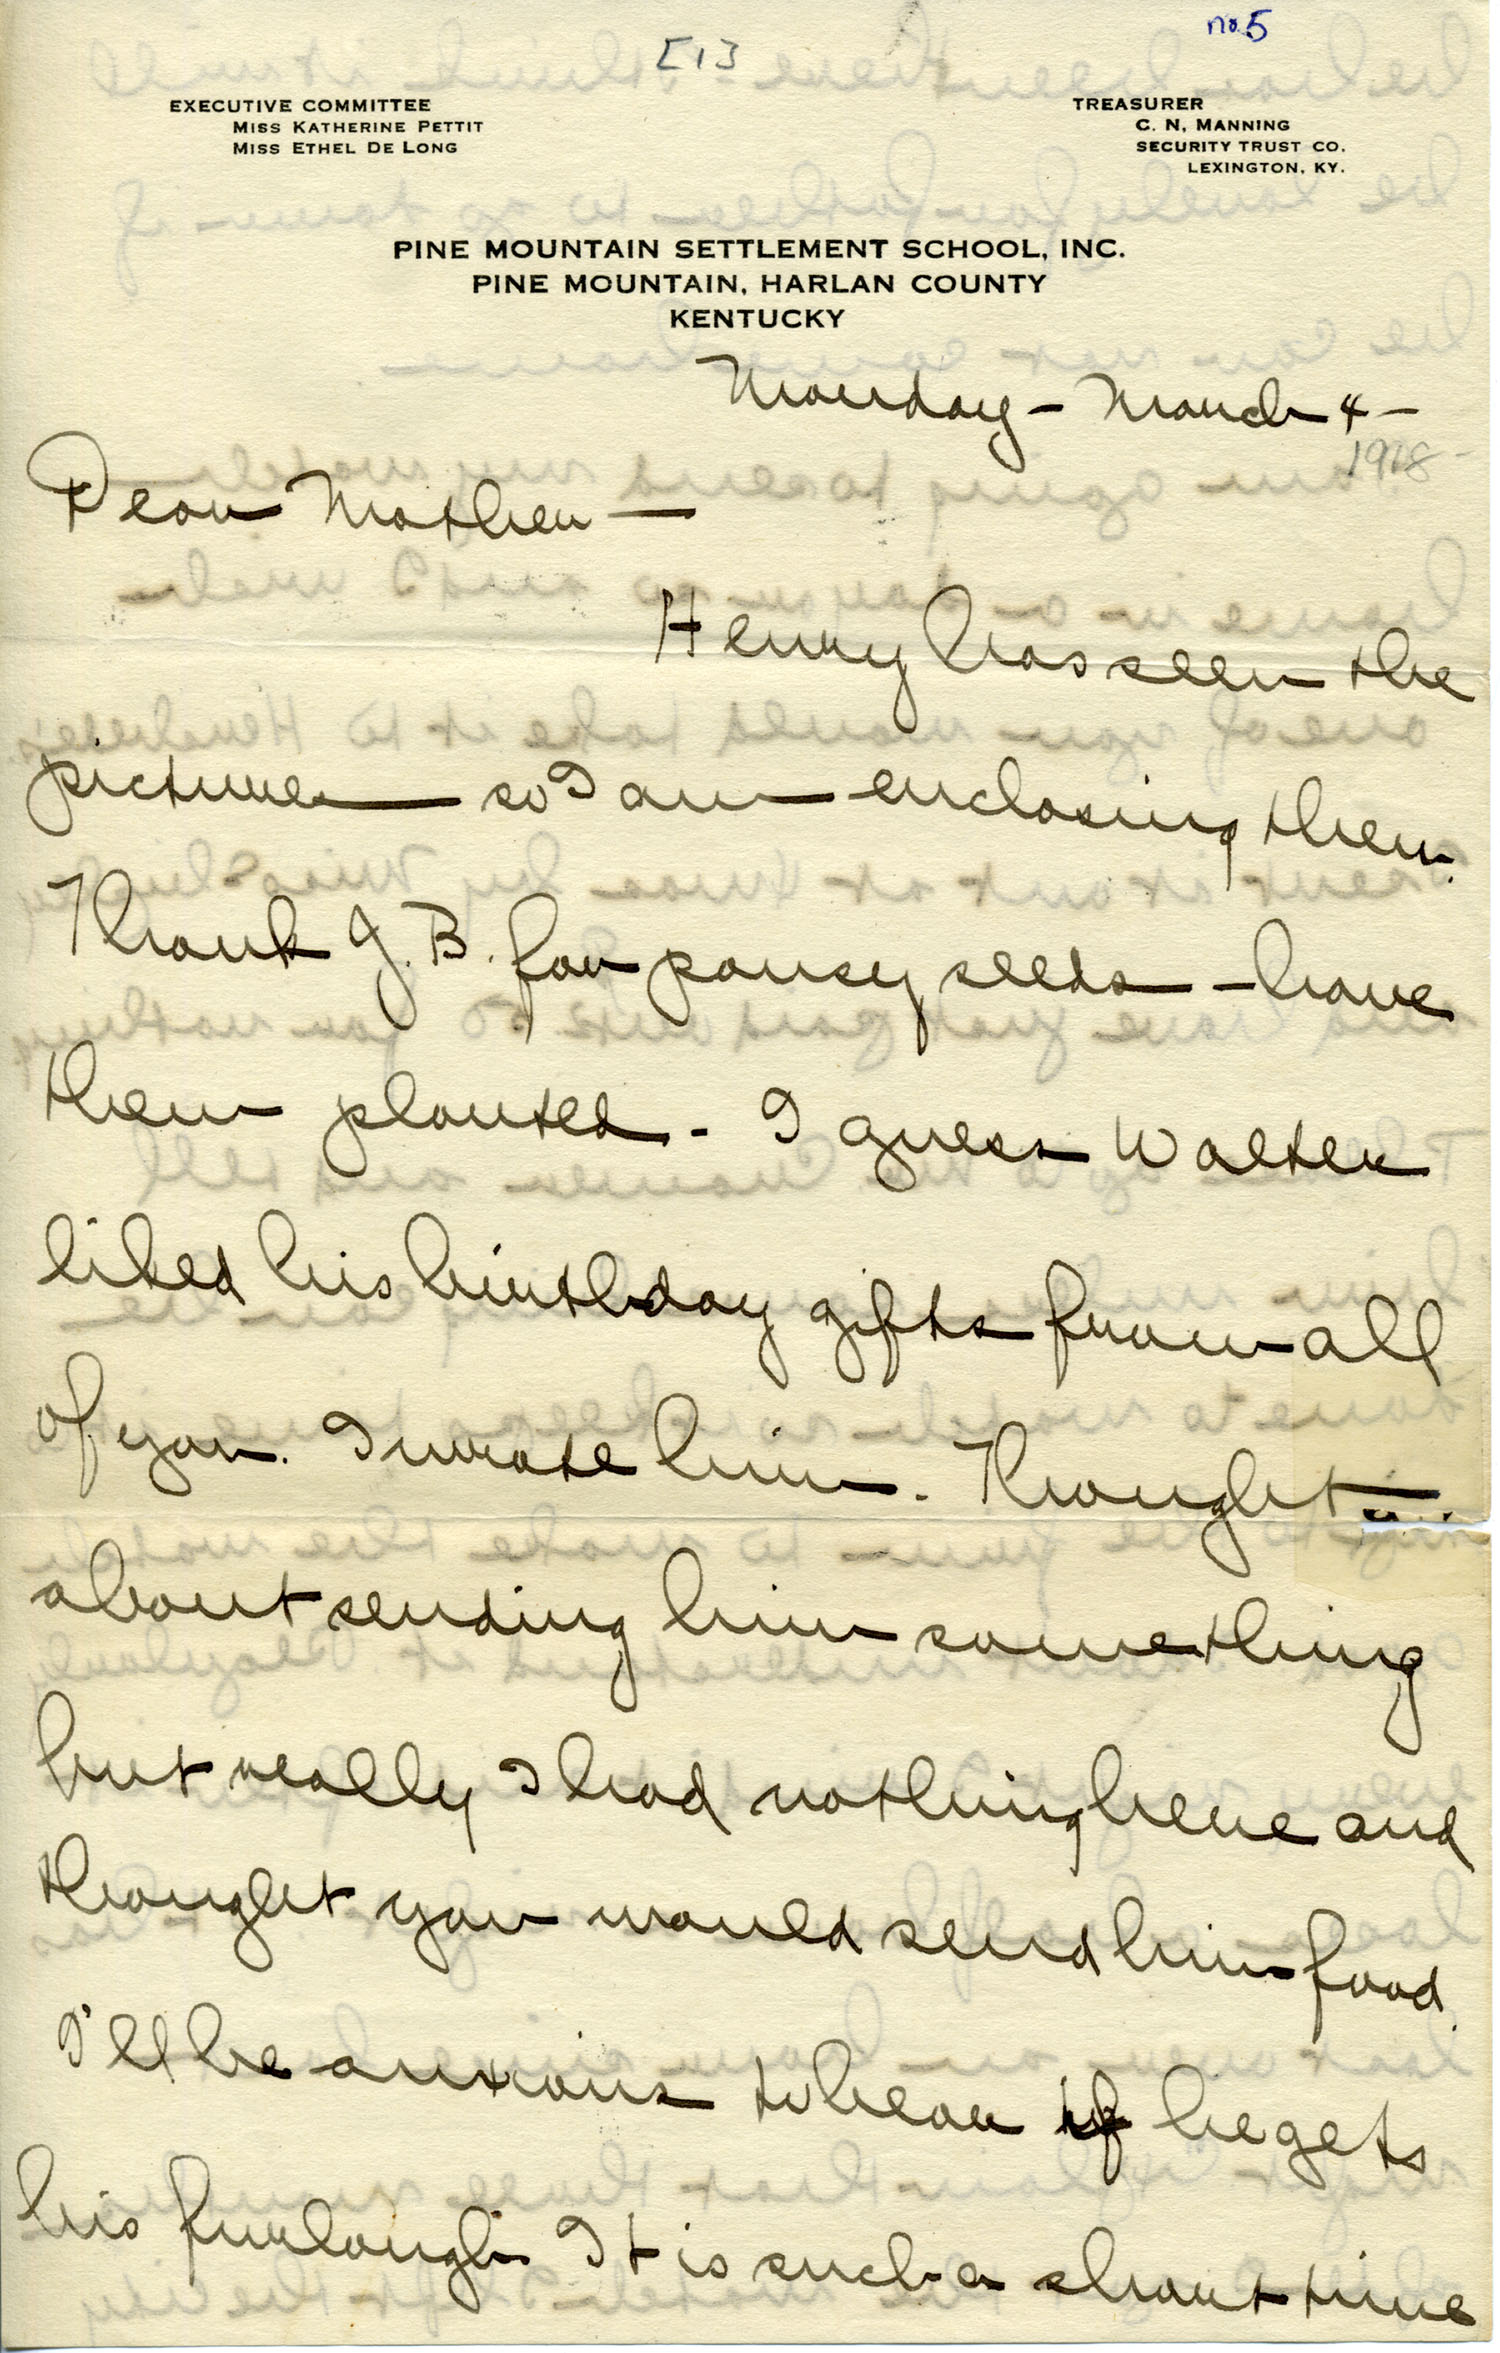 [1]
no. 5
EXECUTIVE COMMITTEE
MISS KATHERINE PETTIT
MISS ETHEL DE LONG
TREASURER
C. N. MANNING
SECURITY TRUST CO.
LEXINGTON, KY.
PINE MOUNTAIN SETTLEMENT SCHOOL, INC.
PINE MOUNTAIN, HARLAN COUNTY
KENTUCKY
Monday - March 4 -
1918 -
Dear Mother -
Henry has seen the
pictures so I am enclosing them.
Thank J. B. for pansy seeds - have
them planted. - I guess Walter
liked his birthday gifts from all
of you. I wrote him. Thought
about sending him something
but really I had nothing here and
thought you would send him food.
I'll be anxious to hear if he gets
his furlough. It is such a short time